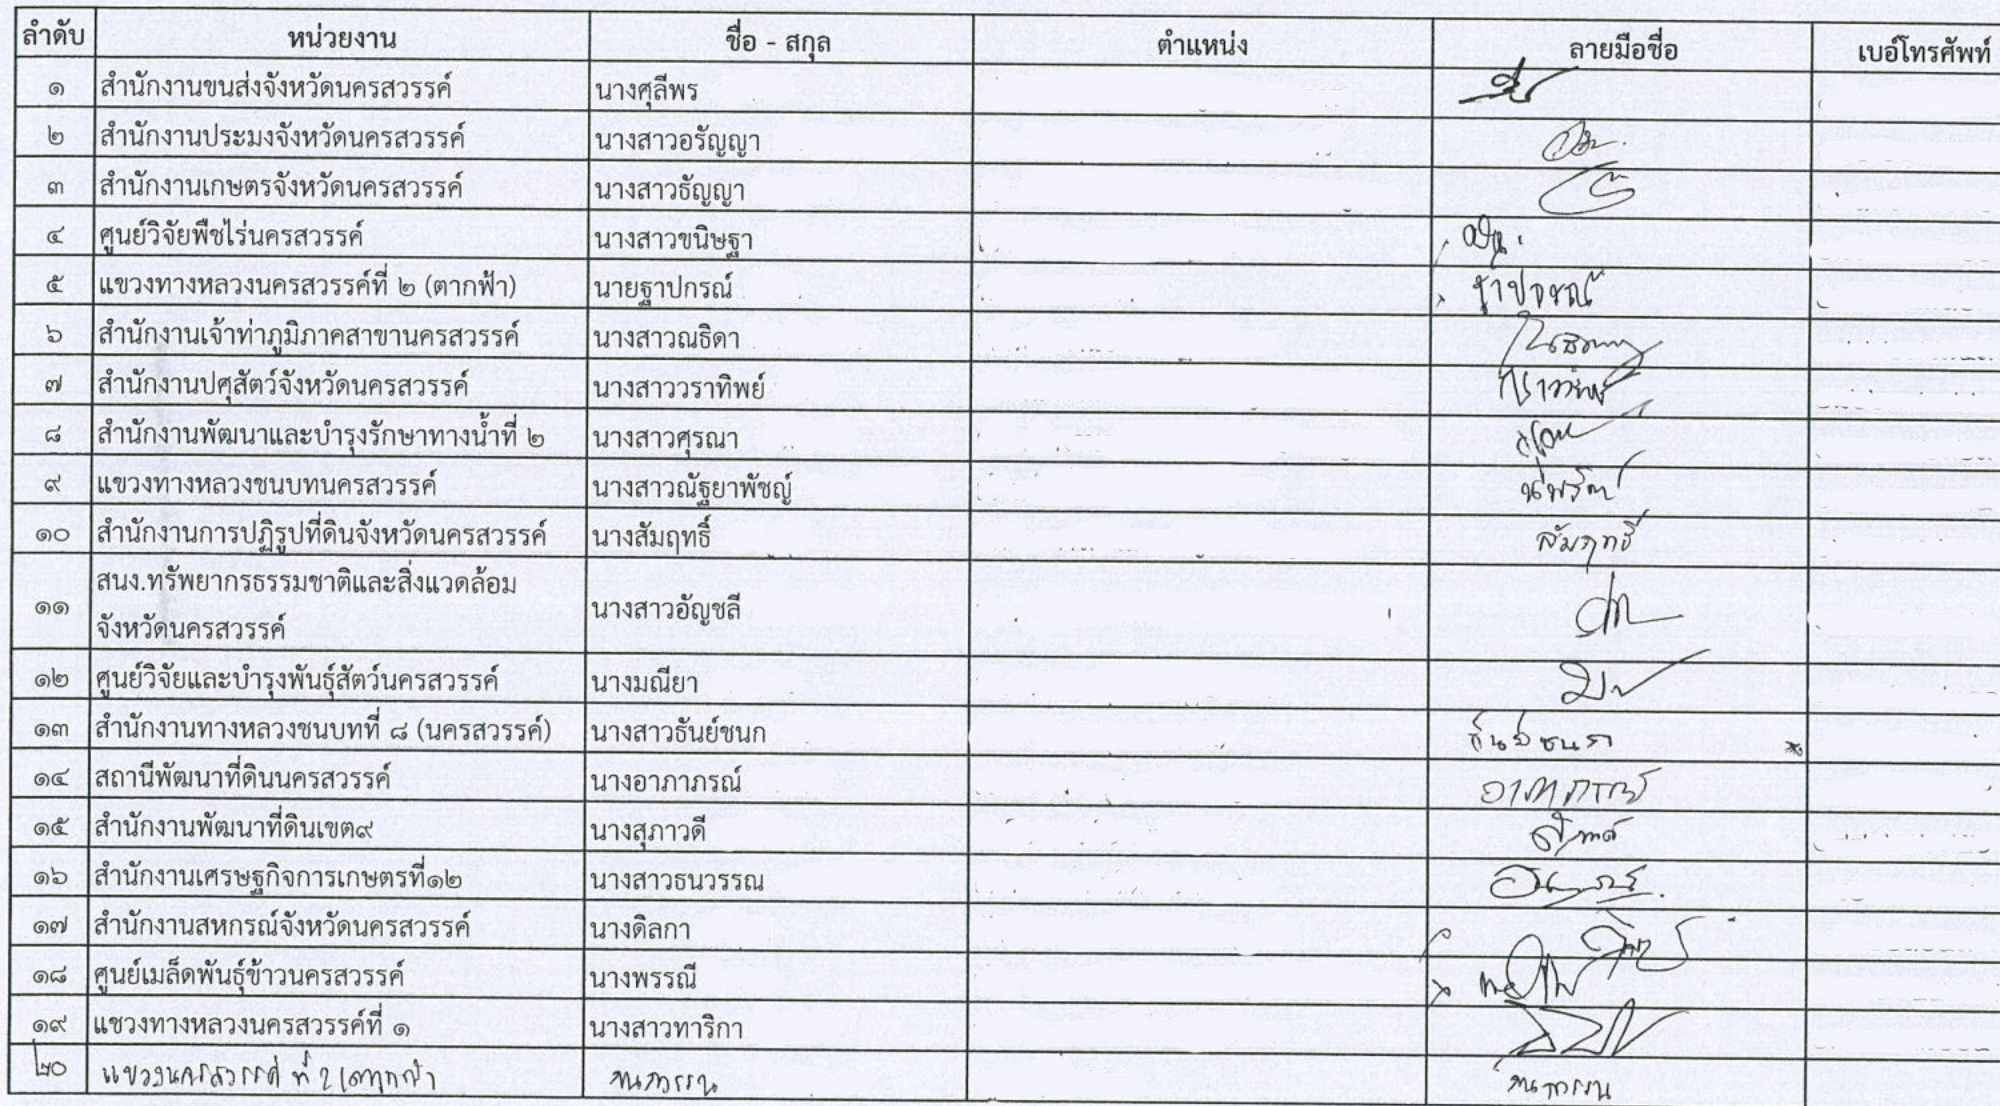 ลำดับ หน่วยงาน ชื่อ - สกุล ตำแหน่ง ลายมือชื่อ เบอ์โทรศัพท์
๑ สำนักงานขนส่งจังหวัดนครสวรรค์ นางศุลีพร
๒ สำนักงานประมงจังหวัดนครสวรรค์ นางสาวอรัญญา
๓ สำนักงานเกษตรจังหวัดนครสวรรค์ นางสาวธัญญา
๔ ศูนย์วิจัยพืชไร่นครสวรรค์ นางสาวขนิษฐา
๕ แขวงทางหลวงนครสวรรค์ที่ ๒ (ตากฟ้า) นายฐาปกรณ์ ฐาปกรณ์
๖ สำนักงานเจ้าท่าภูมิภาคสาขานครสวรรค์ นางสาวณธิดา
๗ สำนักงานปศุสัตว์จังหวัดนครสวรรค์ นางสาววราทิพย์
๘ สำนักงานพัฒนาและบำรุงรักษาทางน้ำที่ ๒ นางสาวศุรณา
๙ แขวงทางหลวงชนบทนครสวรรค์ นางสาวณัฐยาพัชญ์
๑๐ สำนักงานการปฏิรูปที่ดินจังหวัดนครสวรรค์ นางสัมฤทธิ์ สัมฤทธิ์
๑๑ สนง.ทรัพยากรธรรมชาติและสิ่งแวดล้อม
จังหวัดนครสวรรค์ นางสาวอัญชลี
๑๒ ศูนย์วิจัยและบำรุงพันธุ์สัตว์นครสวรรค์ นางมณียา
๑๓ สำนักงานทางหลวงชนบทที่ ๘ (นครสวรรค์) นางสาวธันย์ชนก ธันย์ชนก
๑๔ สถานีพัฒนาที่ดินนครสวรรค์ นางอาภาภรณ์ อาภาภรณ์
๑๕ สำนักงานพัฒนาที่ดินเขต๙ นางสุภาวดี
๑๖ สำนักงานเศรษฐกิจการเกษตรที่๑๒ นางสาวธนวรรณ
๑๗ สำนักงานสหกรณ์จังหวัดนครสวรรค์ นางดิลกา
๑๘ ศูนย์เมล็ดพันธุ์ข้าวนครสวรรค์ นางพรรณี
๑๙ แชวงทางหลวงนครสวรรค์ที่ ๑ นางสาวทาริกา
๒๐ แขวงนครสวรรค์ ที่ 2 (ตากฟ้า